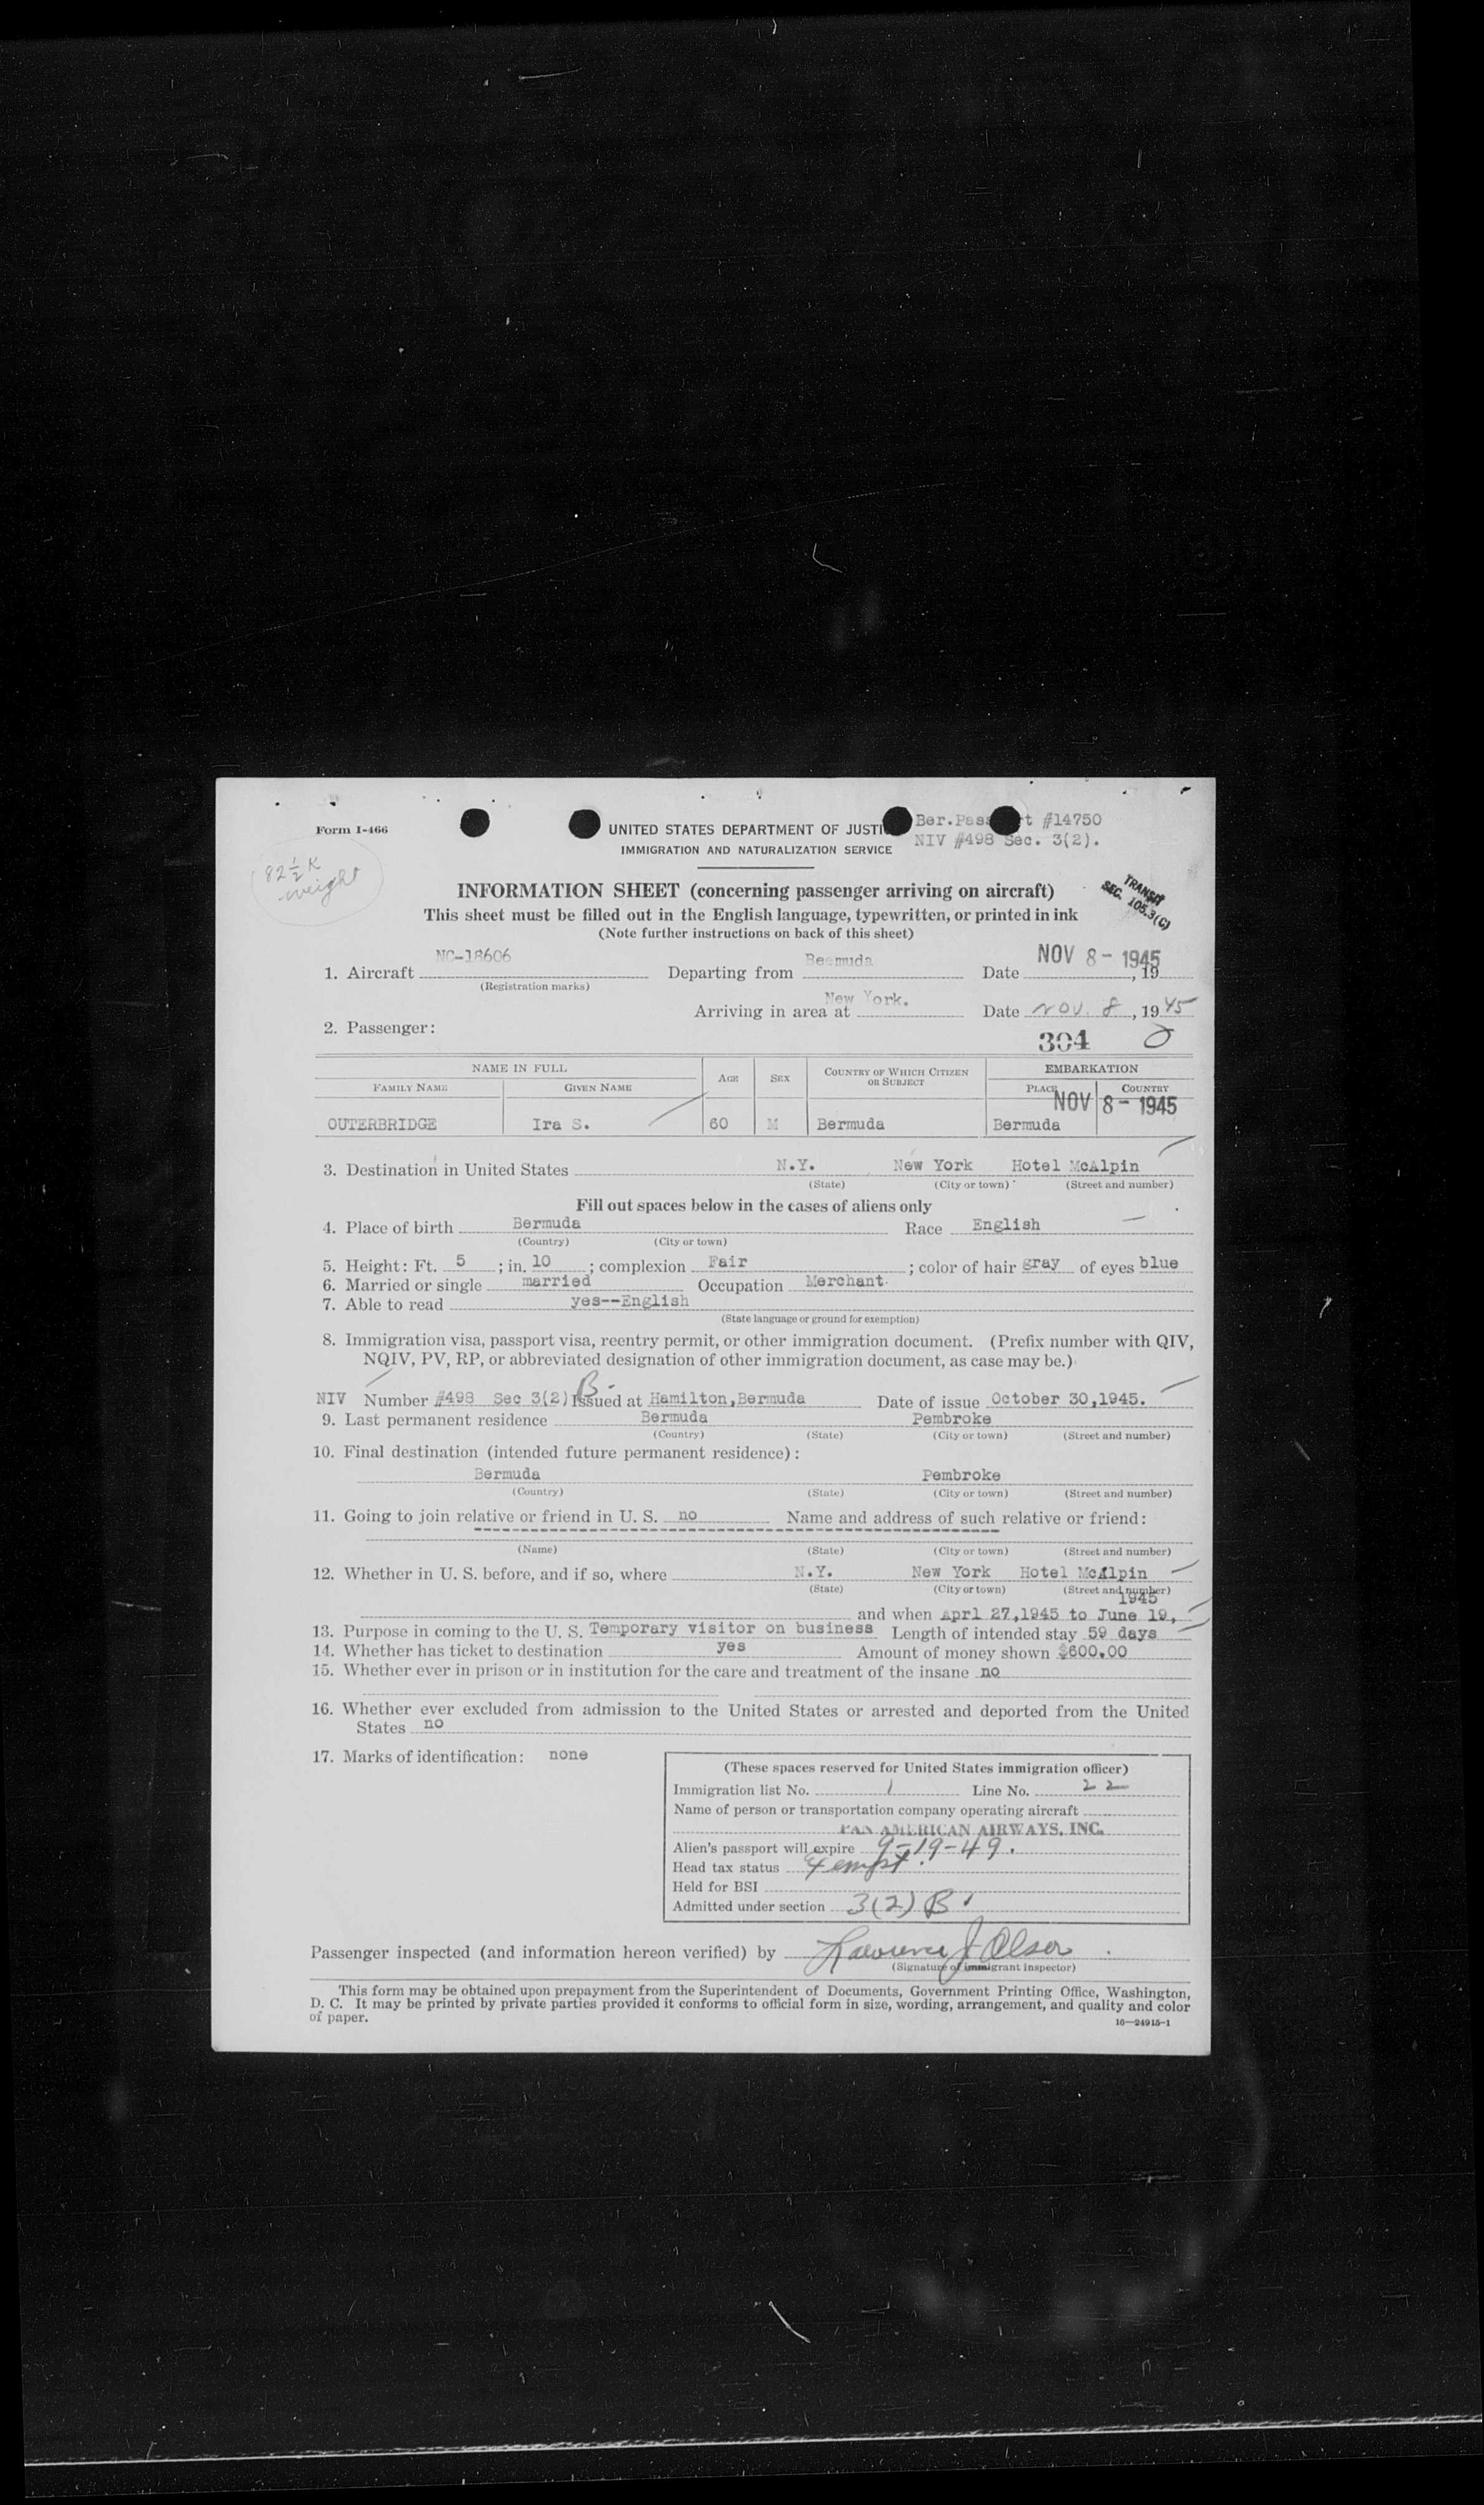 Form I-466
UNITED STATES DEPARTMENT OF JUSTI
Ber.Pass t #14750
IMMIGRATION AND NATURALIZATION SERVICE
NIV #498 Sec. 3(2).
82½ K
weight
INFORMATION SHEET (concerning passenger arriving on aircraft)
TRANSIT
SEC. 105.3(C)
This sheet must be filled out in the English language, typewritten, or printed in ink
(Note further instructions on back of this sheet)
1. Aircraft NC-18606 Departing from Beemuda Date NOV 8- 1945, 19
(Registration marks)
Arriving in area at New York. Date Nov. 8, 1945
2. Passenger:
304
NAME IN FULL AGE SEX COUNTRY OF WHICH CITIZEN OR SUBJECT EMBARKATION
FAMILY NAME GIVEN NAME PLACE COUNTRY
NOV 8- 1945
OUTERBRIDGE Ira S. 60 M Bermuda Bermuda
3. Destination in United States N.Y. New York Hotel McAlpin
(State) (City or town) (Street and number)
Fill out spaces below in the cases of aliens only
4. Place of birth Bermuda Race English
(Country) (City or town)
5. Height: Ft. 5 ; in. 10 ; complexion Fair ; color of hair gray of eyes blue
6. Married or single married Occupation Merchant
7. Able to read yes--English
(State language or ground for exemption)
8. Immigration visa, passport visa, reentry permit, or other immigration document. (Prefix number with QIV,
NQIV, PV, RP, or abbreviated designation of other immigration document, as case may be.)
NIV Number #498 Sec 3(2) B Issued at Hamilton,Bermuda Date of issue October 30,1945.
9. Last permanent residence Bermuda Pembroke
(Country) (State) (City or town) (Street and number)
10. Final destination (intended future permanent residence):
Bermuda Pembroke
(Country) (State) (City or town) (Street and number)
11. Going to join relative or friend in U. S. no Name and address of such relative or friend:
(Name) (State) (City or town) (Street and number)
12. Whether in U. S. before, and if so, where N.Y. New York Hotel McAlpin
(State) (City or town) (Street and number)
1945
and when Aprl 27,1945 to June 19,
13. Purpose in coming to the U. S. Temporary visitor on business Length of intended stay 59 days
14. Whether has ticket to destination yes Amount of money shown $600.00
15. Whether ever in prison or in institution for the care and treatment of the insane no
16. Whether ever excluded from admission to the United States or arrested and deported from the United
States no
17. Marks of identification: none
(These spaces reserved for United States immigration officer)
Immigration list No. 1 Line No. 22
Name of person or transportation company operating aircraft
PAN AMERICAN AIRWAYS, INC.
Alien's passport will expire 9-19-49.
Head tax status Exempt.
Held for BSI
Admitted under section 3(2) B
Passenger inspected (and information hereon verified) by Lawrence J Olson
(Signature of immigrant inspector)
This form may be obtained upon prepayment from the Superintendent of Documents, Government Printing Office, Washington,
D. C. It may be printed by private parties provided it conforms to official form in size, wording, arrangement, and quality and color
of paper.
16—24915-1